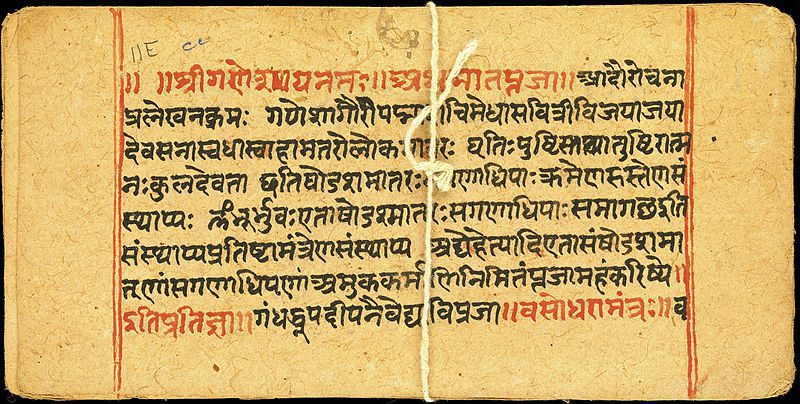 ॥ ॥ श्रीगणेशायनमः ॥ अथ मातृपूजा ॥ आदौरोचना
प्रलेखनक्रमः गणेशागौरीपद्मा चिमेधासवित्रीविजयाजया
देवसेनास्वधास्वाहामातरोलोकमातरः धृतिःपुष्टिस्तथातुष्टिरात्म
नःकुलदेवता इतिषोडशमातरः गणाधिपाःक्रमेणहस्तेणसं
स्थाप्यः ॐभूर्भुवःएताषोडशमातरःसगणाधिपाःसमागछइति
संस्थाप्यप्रतिष्टामंत्रेणसंस्थाप्य अद्येहेत्यादिएतासंषोडशमा
तृणांसगणाधिपाणां अमुककर्मणिनिमितंपूजामहंकरिष्ये ॥
इतिप्रतिज्ञा ॥ गंधधूपदीपनैवेद्यविपूजा ॥ वसोधरामंत्रः ॥ व